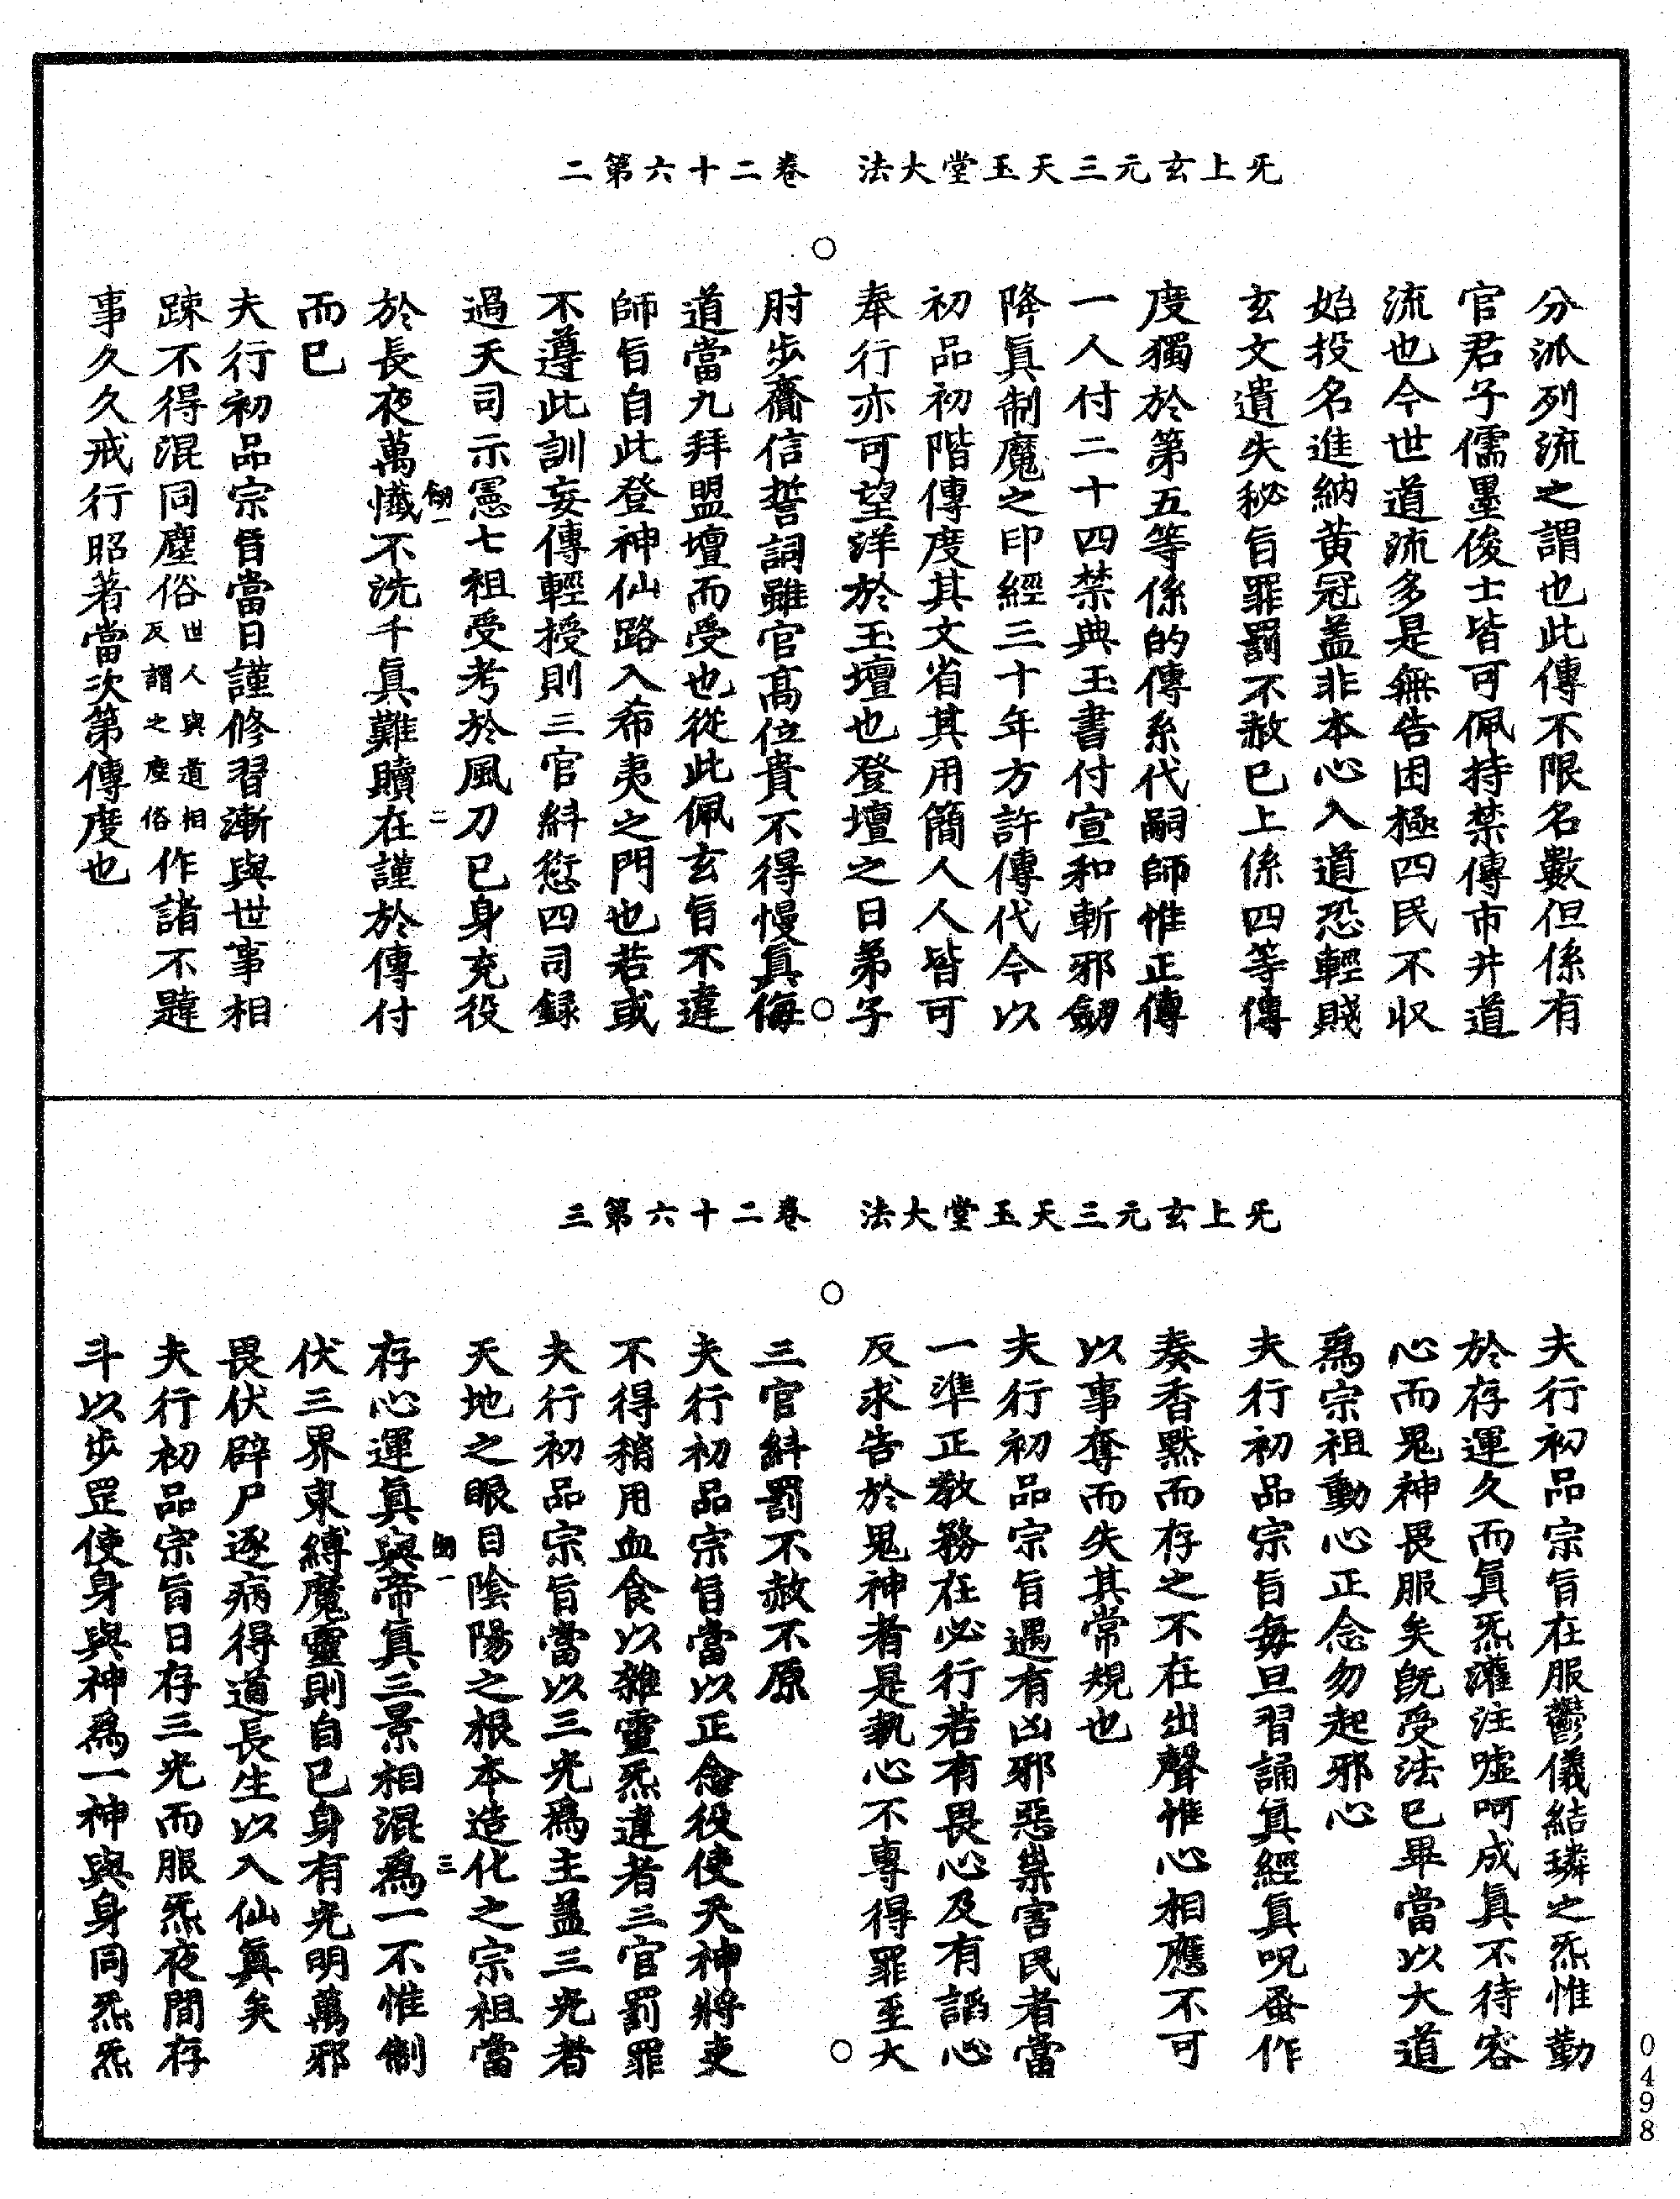 无上玄元三天玉堂大法　卷二十六第二
分派列流之謂也此傳不限名數但係有
官君子儒墨俊士皆可佩持禁傳市井道
流也今世道流多是無告困極四民不收
始投名進納黃冠盖非本心入道恐輕賤
玄文遺失秘旨罪罰不赦已上係四等傳
度獨於第五等係的傳系代嗣師惟正傳
一人付二十四禁典玉書付宣和斬邪劒
降真制魔之印經三十年方許傳代今以
初品初階傳度其文省其用簡人人皆可
奉行亦可望洋於玉壇也登壇之日弟子
肘步齎信誓詞雖官高位貴不得慢真侮
道當九拜盟壇而受也從此佩玄旨不違
師旨自此登神仙路入希夷之門也若或
不遵此訓妄傳輕授則三官紏愆四司録
過天司示憲七祖受考於風刀已身充役
劒一　二
於長夜萬懺不洗千真難贖在謹於傳付
而已
夫行初品宗旨當日謹修習漸與世事相
踈不得混同塵俗世人與道相反謂之塵俗作諸不韙
事久久戒行昭著當次第傳度也
无上玄元三天玉堂大法　卷二十六第三
夫行初品宗旨在服鬱儀結璘之炁惟勤
於存運久而真炁灌注噓呵成真不待容
心而鬼神畏服矣旣受法已畢當以大道
爲宗祖動心正念勿起邪心
夫行初品宗旨每旦習誦真經真呪蚤作
奏香黙而存之不在出聲惟心相應不可
以事奪而失其常規也
夫行初品宗旨遇有凶邪惡祟害民者當
一準正教務在必行若有畏心及有謟心
反求告於鬼神者是執心不專得罪至大
三官紏罰不赦不原
夫行初品宗旨當以正念役使天神將吏
不得稍用血食以雜靈炁違者三官罰罪
夫行初品宗旨當以三光爲主盖三光者
天地之眼目陰陽之根本造化之宗祖當
劒一　三
存心運真與帝真三景相混爲一不惟制
伏三界束縛魔靈則自已身有光明萬邪
畏伏辟尸逐病得道長生以入仙真矣
夫行初品宗旨日存三光而服炁夜間存
斗以步罡使身與神爲一神與身同炁炁
0498